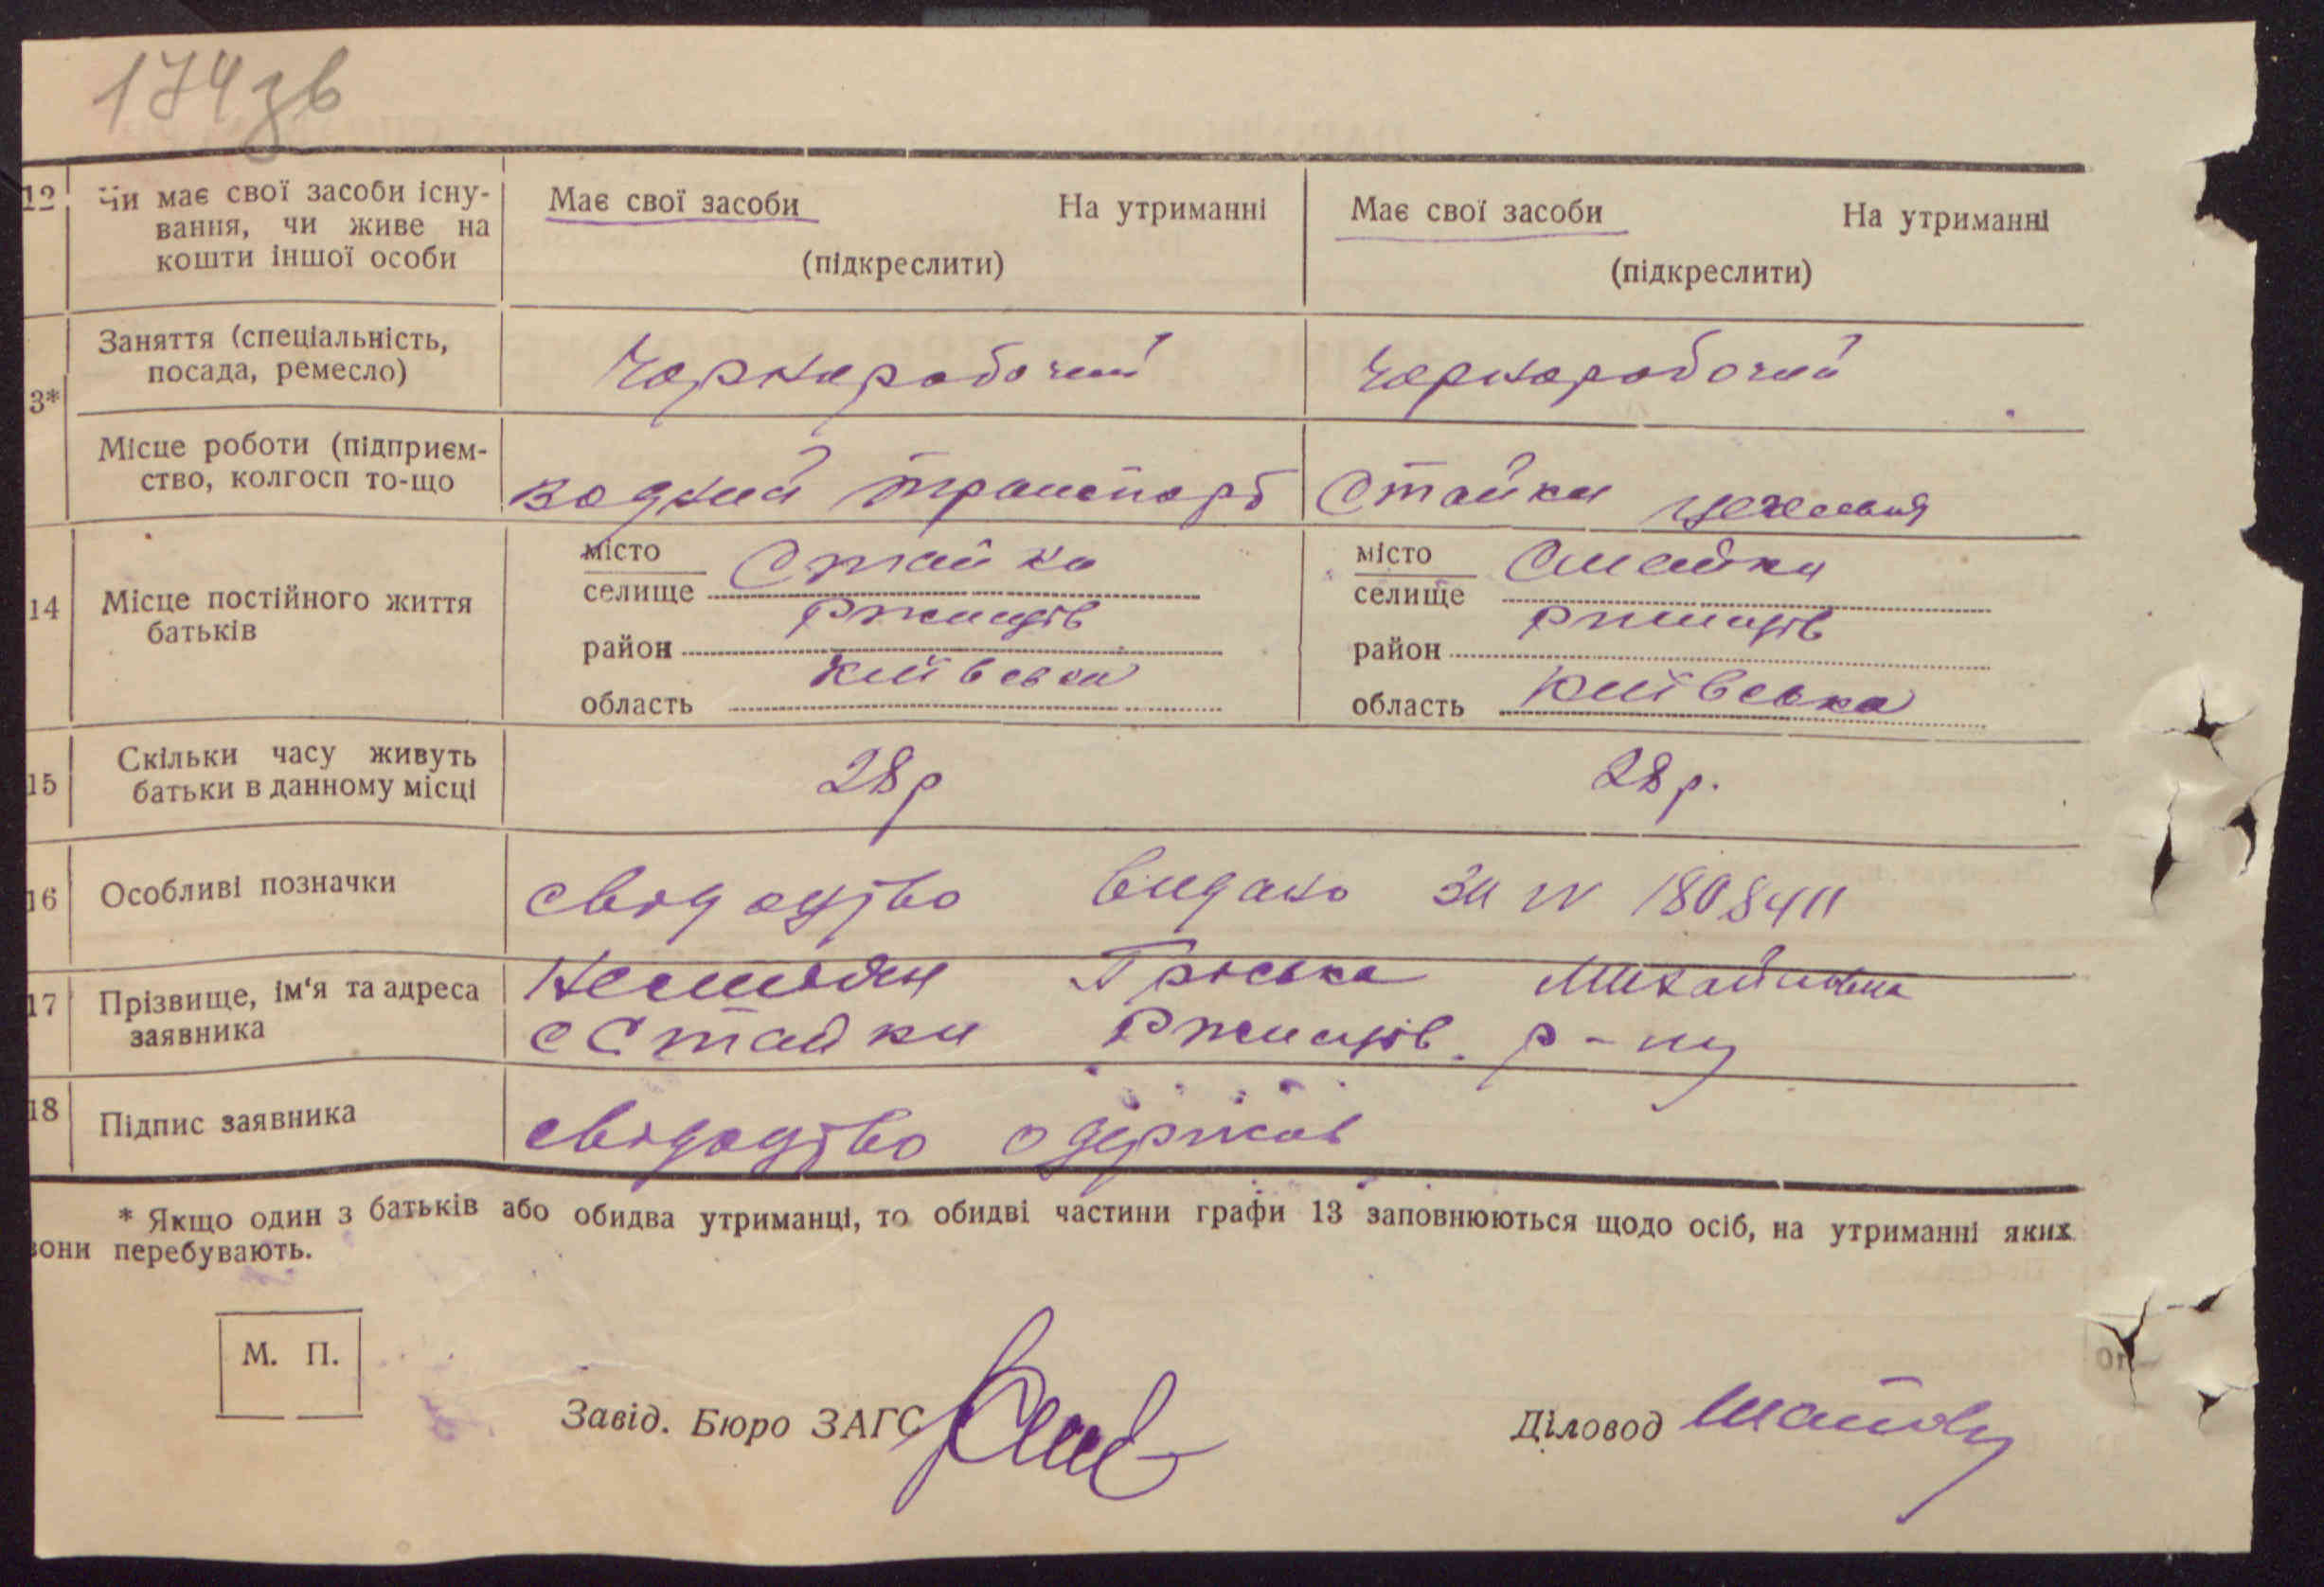 174зв
12 Чи має свої засоби існу-
вання, чи живе на
кошти іншої особи
Має свої засоби На утриманні
(підкреслити)
Має свої засоби На утриманні
(підкреслити)
3* Заняття (спеціальність,
посада, ремесло)
Чорнаробочий
Чорноробочий
Місце роботи (підприєм-
ство, колгосп то-що
водний транспорт
Стайки
14 Місце постійного життя
батьків
місто
селище Стайки
район Ржищів
область Київська
місто
селище Стайки
район Ржищів
область Київська
15 Скільки часу живуть
батьки в данному місці
28р
28р.
16 Особливі позначки
свідоцтво видано за N 1808411
17 Прізвище, ім‘я та адреса
заявника
Михайловна
с Стайки Ржищів. р-ну
18 Підпис заявника
свідоцтво одержав
* Якщо один з батьків або обидва утриманці, то обидві частини графи 13 заповнюються щодо осіб, на утриманні яких
вони перебувають.
М. П.
Завід. Бюро ЗАГС
Діловод